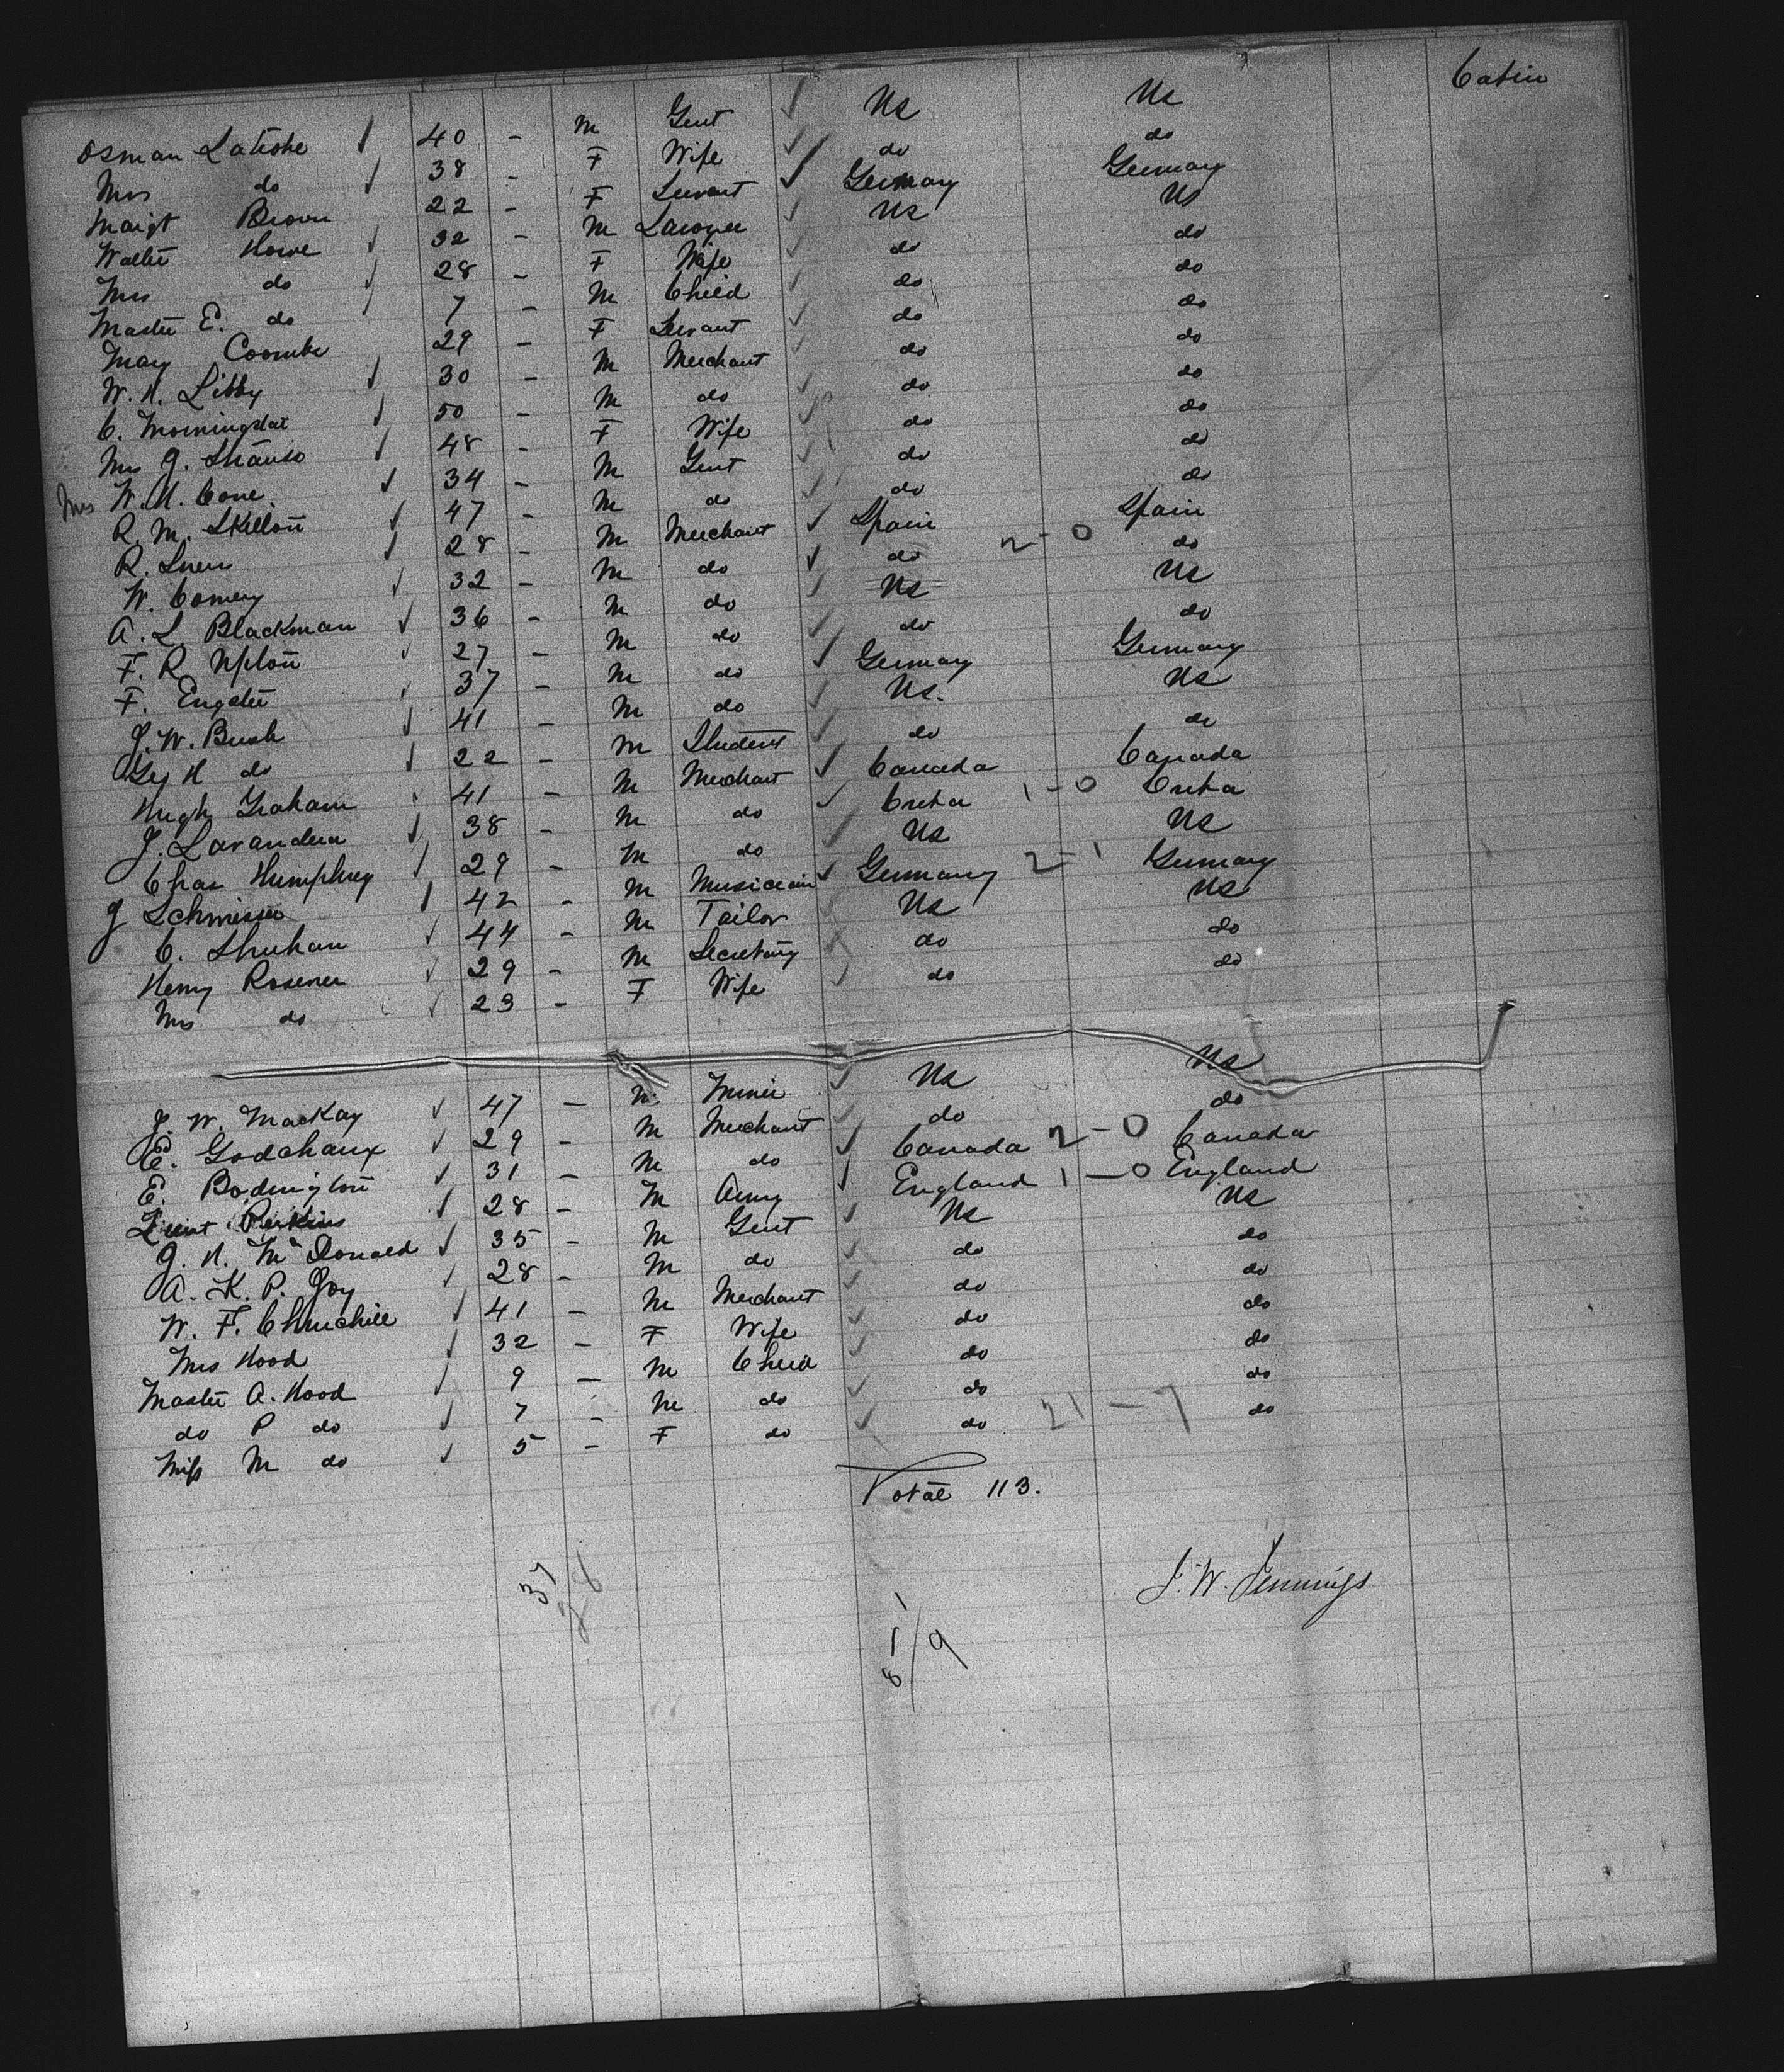 Cabin
Osman Latrobe 40 - M Gent US US
Mrs do 38 - F Wife do do
Margt Brown 22 - F Servant Germany Germany
Walter Howe 32 - M Lawyer US US
Mrs do 28 - F Wife do do
Master E. do 7 - M Child do do
Mary Coombe 29 - F Servant do do
W. H. Libby 30 - M Merchant do do
C. Morningstar 50 - M do do do
Mrs J. Strauss 48 - F Wife do do
Mrs W. H. Cone 34 - M Gent do do
R. M. Skelton 47 - M do do do
R. 28 - M Merchant Spain Spain
W. Comery 32 - M do do 2-0 do
A. L Blackman 36 - M do US US
F. R Upton 27 - M do do do
F. Engster 37 - M do Germany Germany
J. W. Bush 41 - M do US. US
Geo H do 22 - M Student do do
Hugh Graham 41 - M Merchant Canada Canada
J. Lavandera 38 - M do Cuba 1-0 Cuba
Chas Humphrey 29 - M do US US
J Schmisser 42 - M Musician Germany 2-1 Germany
C. Shuhan 44 - M Tailor US US
Henry Rosener 29 - M Secretary do do
Mrs do 23 - F Wife do do
J. W. Mackay 47 - M Miner US US
E. Godchaux 29 - M Merchant do do
E. Bodington 31 - M do Canada 2-0 Canada
Lieut Perkins 28 - M Army England 1-0 England
J. H. McDonald 35 - M Gent US US
A. K. P. Joy 28 - M do do do
W. F. Churchill 41 - M Merchant do do
Mrs Hood 32 - F Wife do do
Master A. Hood 9 - M Child do do
do P do 7 - M do do do
Miss M do 5 - F do do 21-7 do
Total 113.
37
28
J. W. Jennings
1
8/9